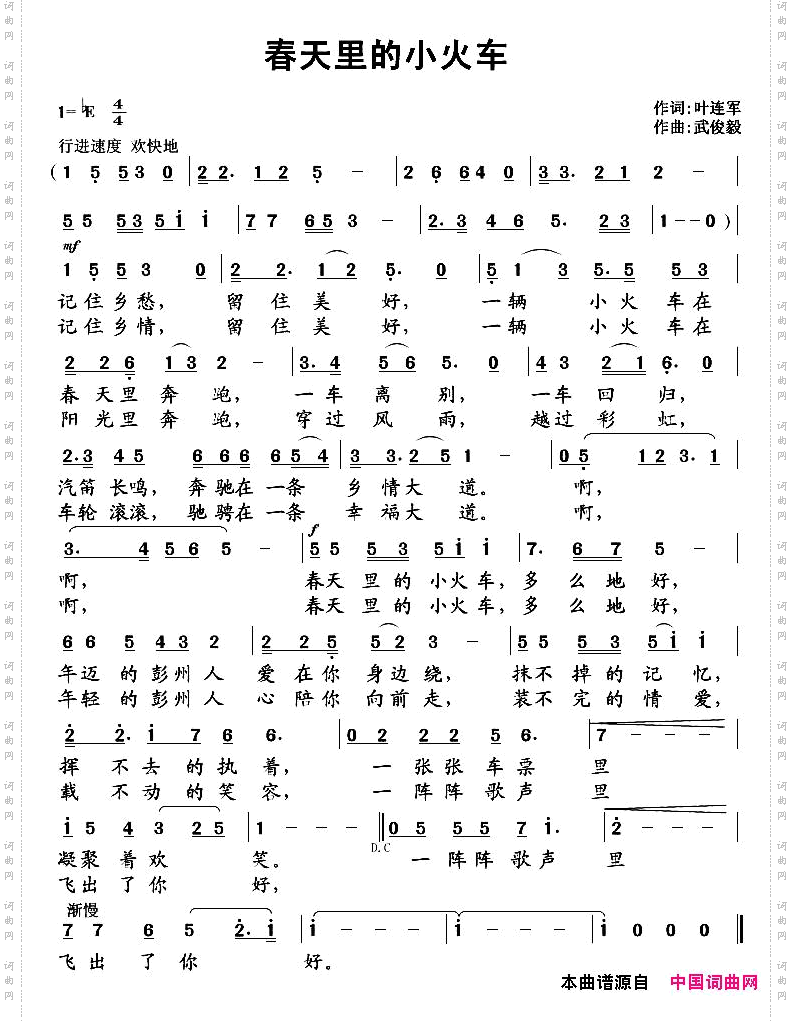 春天里的小火车
1=♭E 4/4
作词:叶连军
作曲:武俊毅
行进速度 欢快地
(1 5 53 0 | 22. 12 5 - | 2 6 64 0 | 33. 21 2 - |
55 53 51 1 | 77 653 - | 2.3 46 5. 23 | 1--0)
mf
1 5 5 3 0 | 2 2. 1 2 5. 0 | 5 1 3 5. 5 5 3 |
记住乡愁, 留住美好, 一辆 小火车在
记住乡情, 留住美好, 一辆 小火车在
2 2 6 1 3 2 - | 3. 4 5 6 5. 0 | 4 3 2 1 6. 0 |
春天里奔跑, 一车离别, 一车回归,
阳光里奔跑, 穿过风雨, 越过彩虹,
2.3 4 5 6 6 6 6 5 4 | 3 3. 2 5 1 - | 0 5 1 2 3. 1 |
汽笛长鸣, 奔驰在一条 乡情大道。 啊,
车轮滚滚, 驰骋在一条 幸福大道。 啊,
f
3. 4 5 6 5 - | 5 5 5 3 5 1 1 | 7. 6 7 5 - |
啊, 春天里的小火车,多么地好,
啊, 春天里的小火车,多么地好,
6 6 5 4 3 2 | 2 2 5 5 2 3 - | 5 5 5 3 5 1 1 |
年迈的彭州人 爱在你身边绕, 抹不掉的记忆,
年轻的彭州人 心陪你向前走, 装不完的情爱,
2 2. 1 7 6 6. | 0 2 2 2 5 6. | 7 - - - |
挥不去的执着, 一张张车票 里
载不动的笑容, 一阵阵歌声 里
1 5 4 3 2 5 | 1 - - - || 0 5 5 5 7 1. | 2 - - - |
D.C
凝聚着欢 笑。 一阵阵歌声 里
飞出了你 好,
渐慢
7 7 6 5 2. 1 | 1 - - - | 1 - - - | 0 0 0 0 ||
飞出了你 好。
本曲谱源自 中国词曲网
词曲网